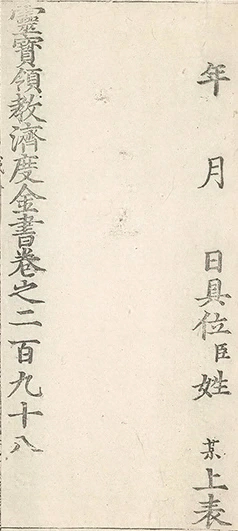 年　月　日具位臣姓某上表
靈寶領教濟度金書卷之二百九十八